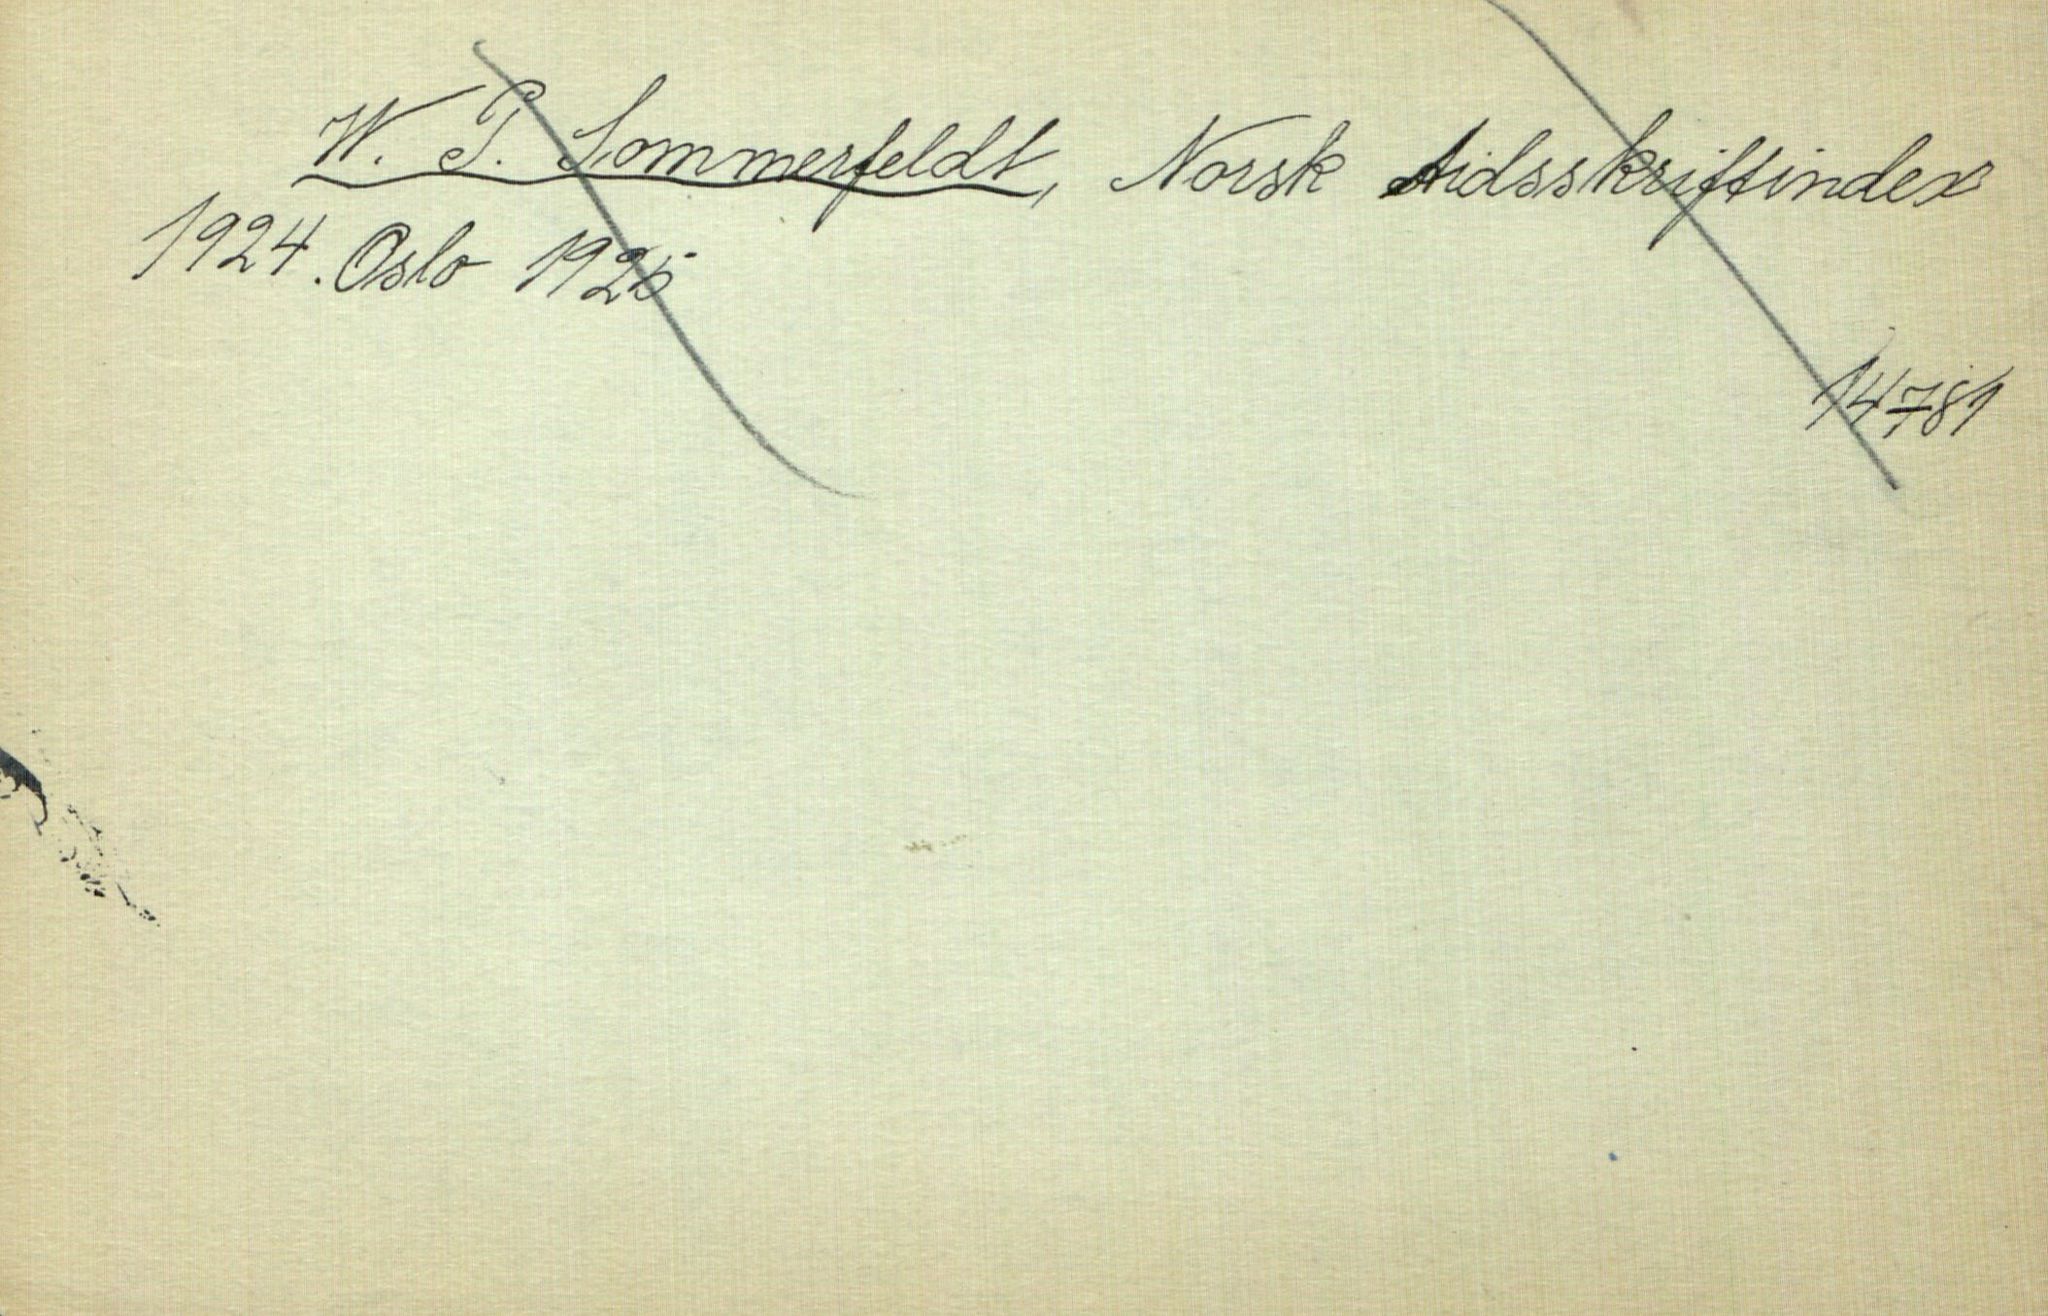 W. P. Sommerfeldt, Norsk tidsskriftindex
1924. Oslo 1925
14781